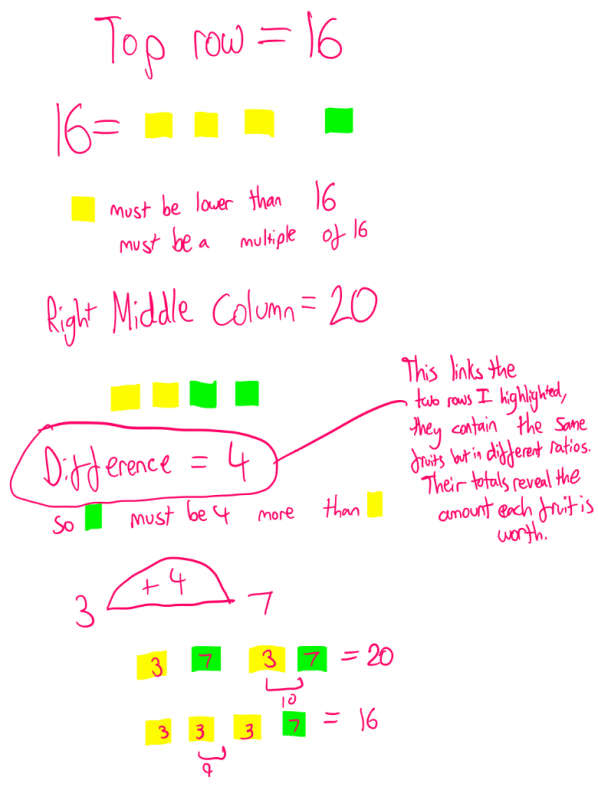 Top row = 16
16=
must be lower than 16
must be a multiple of 16
Right Middle Column = 20
Difference = 4
so must be 4 more than
This links the
two rows I highlighted,
they contain the same
fruits but in different ratios.
Their totals reveal the
amount each fruit is
worth.
+4
3 7
3 7 3 7 = 20
10
3 3 3 7 = 16
9